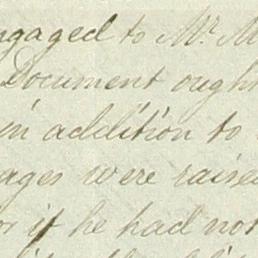 ngaged to Mr. M
Document ough
in addition to
ages were raise
or if he had not